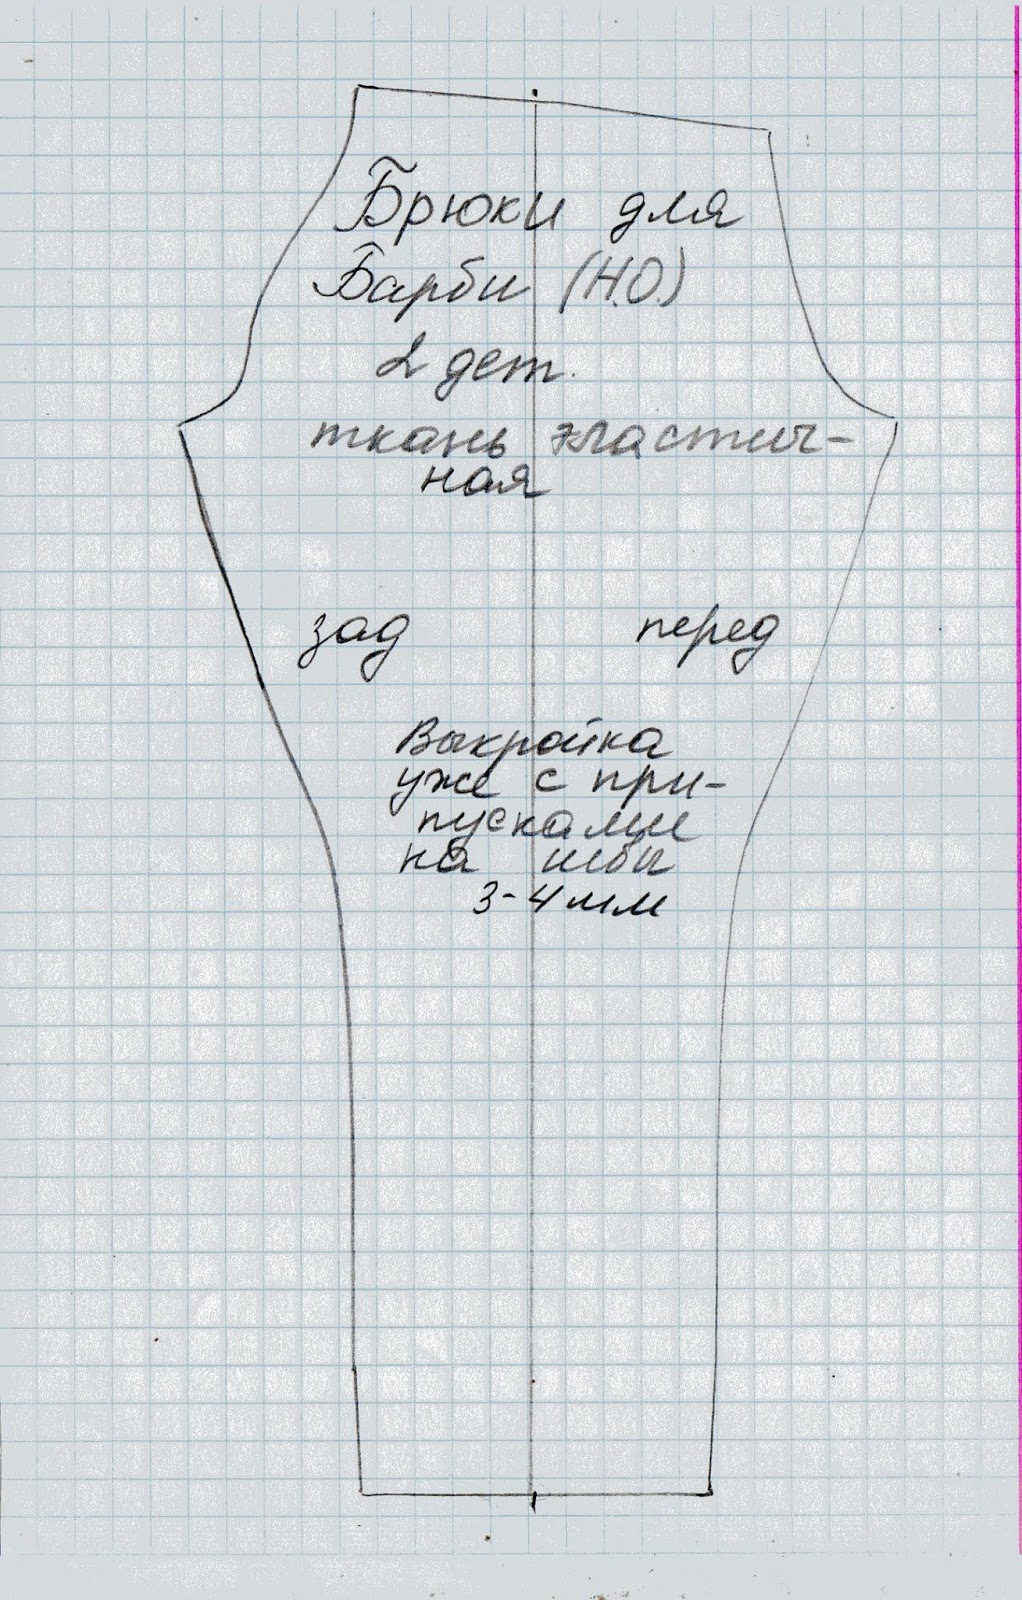 Брюки для
Барби (Н.О.)
2 дет.
ткань эластич-
ная
зад перед
Выкройка
уже с при-
пусками
на швы
3-4 мм